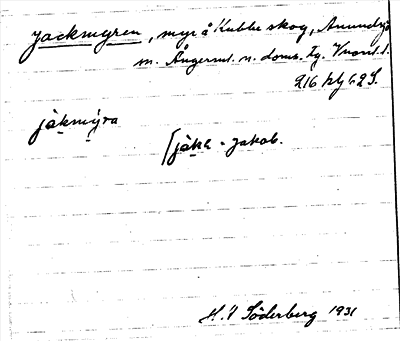 Jackmyren, myr å Kubbe skog, Anundsjö
sn. Ångerml. n. doms. tg. Vnorrl. l.
216 hly 62 S.
jàkmýra
[jàkɑ - Jakob.
H.V Söderberg 1931